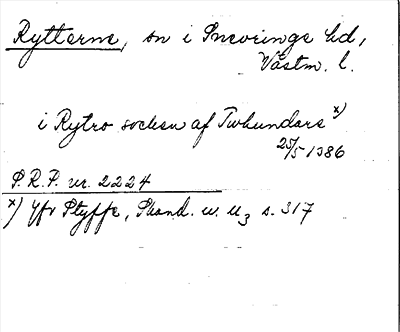 Rytterne, sn i Snevringe hd,
Västm. l.
i Rytro sochen af Twhundars x)
25/5 1386
P.R.P. nr. 2224
x) Jfr Styffe, Skand. u. U3 s. 317